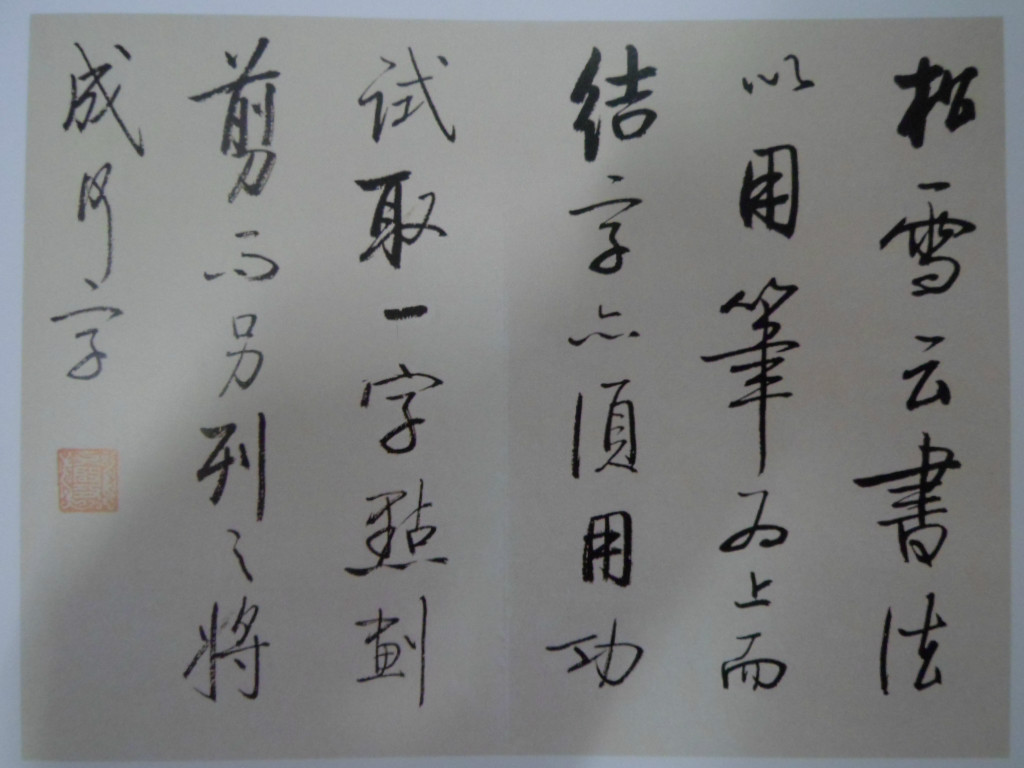 松雪云書法
以用筆为上而
結字亦須用功
试取一字點劃
剪而另列之將
成何字